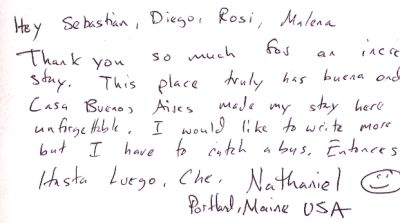 Hey Sebastian, Diego, Rosi, Malena
Thank you so much for an incre
stay. This place truly has buena ond
Casa Buenos Aires made my stay here
unforgettable. I would like to write more
but I have to catch a bus. Entonces
Hasta Luego, Che, Nathaniel
Portland, Maine USA